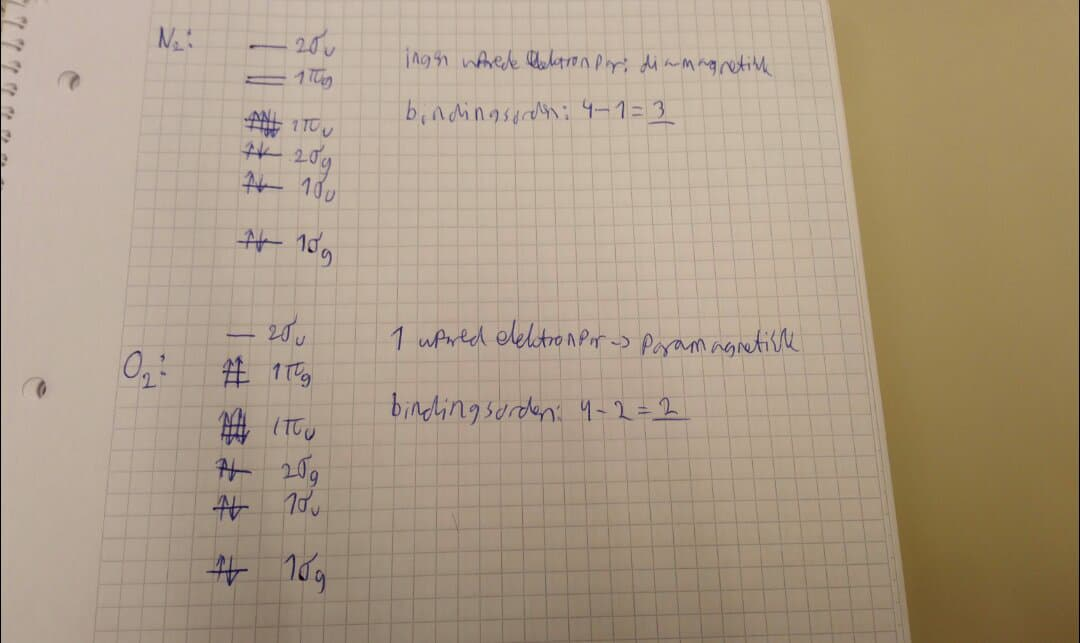 N₂: — 2σᵤ
ingen uparede elektronpar: diamagnetisk
1πg
bindingsorden: 4-1=3
1πᵤ
2σg
1σᵤ
1σg
— 2σᵤ
1 upared elektronpar -> Paramagnetisk
O₂: 1πg
1πᵤ
bindingsorden: 4-2=2
2σg
1σᵤ
1σg